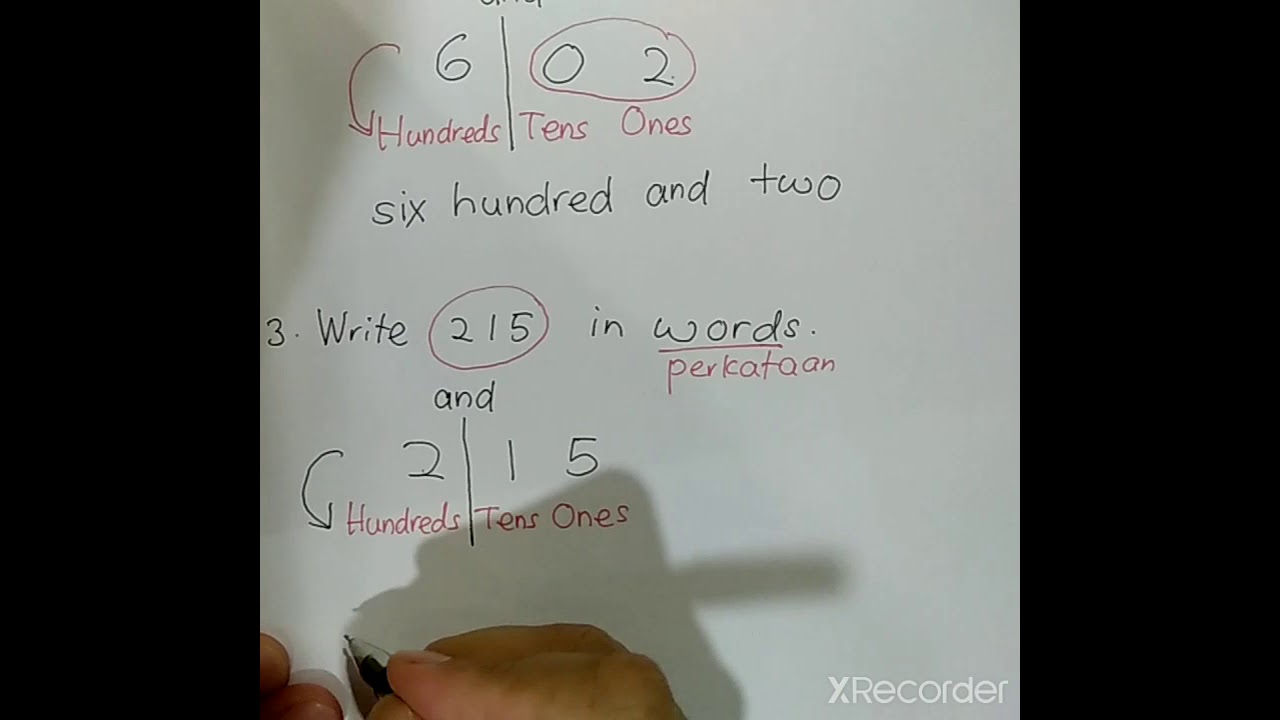 6 0 2
Hundreds Tens Ones
six hundred and two
3. Write 215 in words.
perkataan
and
2 1 5
Hundreds Tens Ones
XRecorder